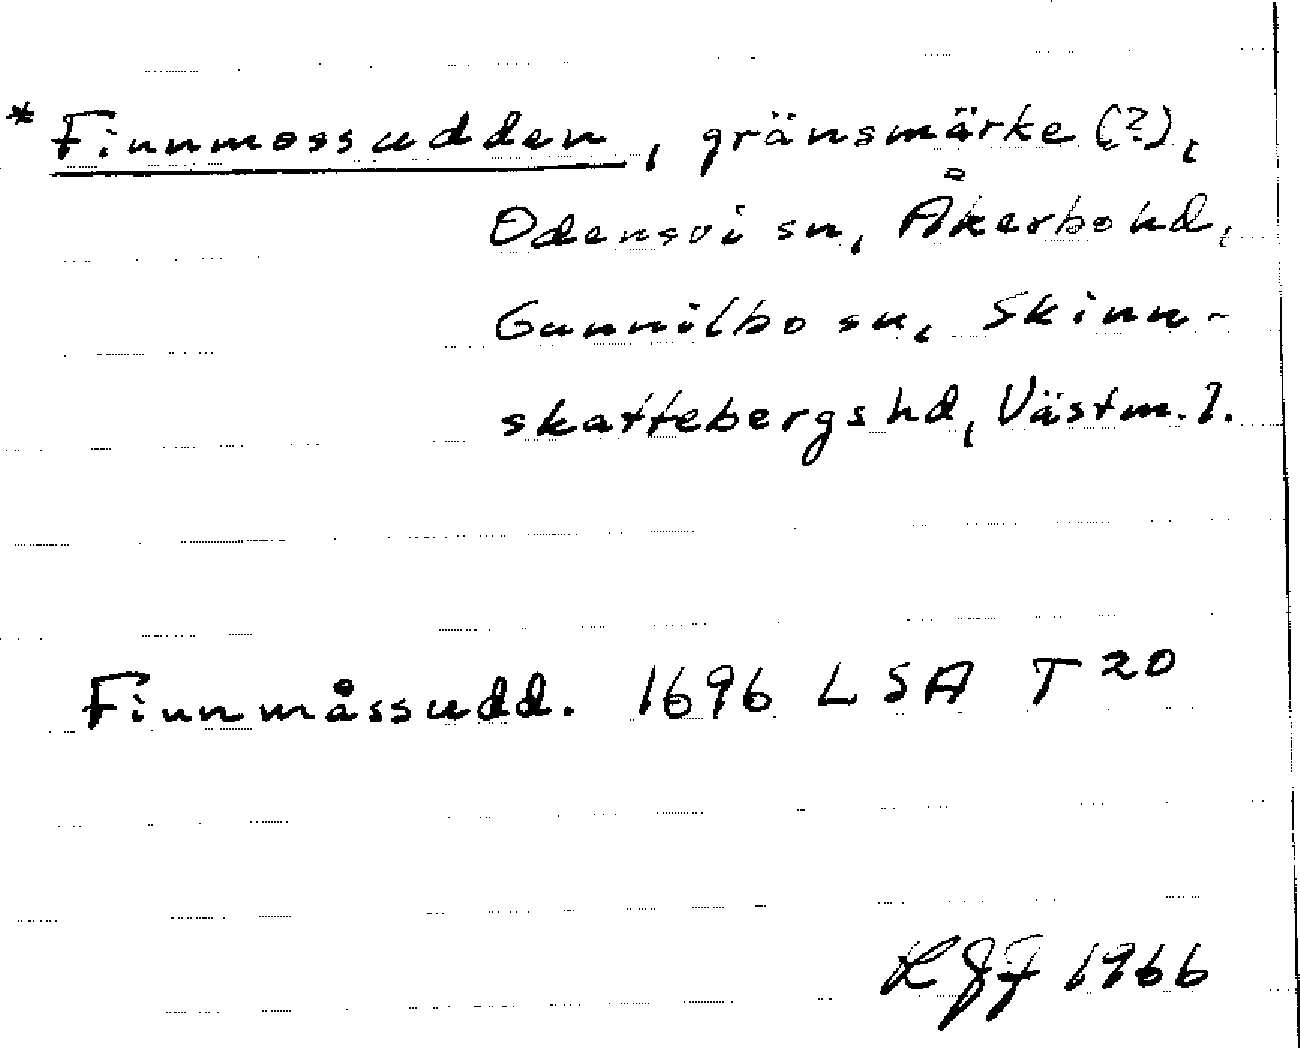 *Finnmossudden, gränsmärke (?),
Odensvi sn, Åkerbo hd,
Gunnilbo sn, Skinn-
skattebergs hd, Västm. l.
Finnmåssudd. 1696 LSA T 20
1966